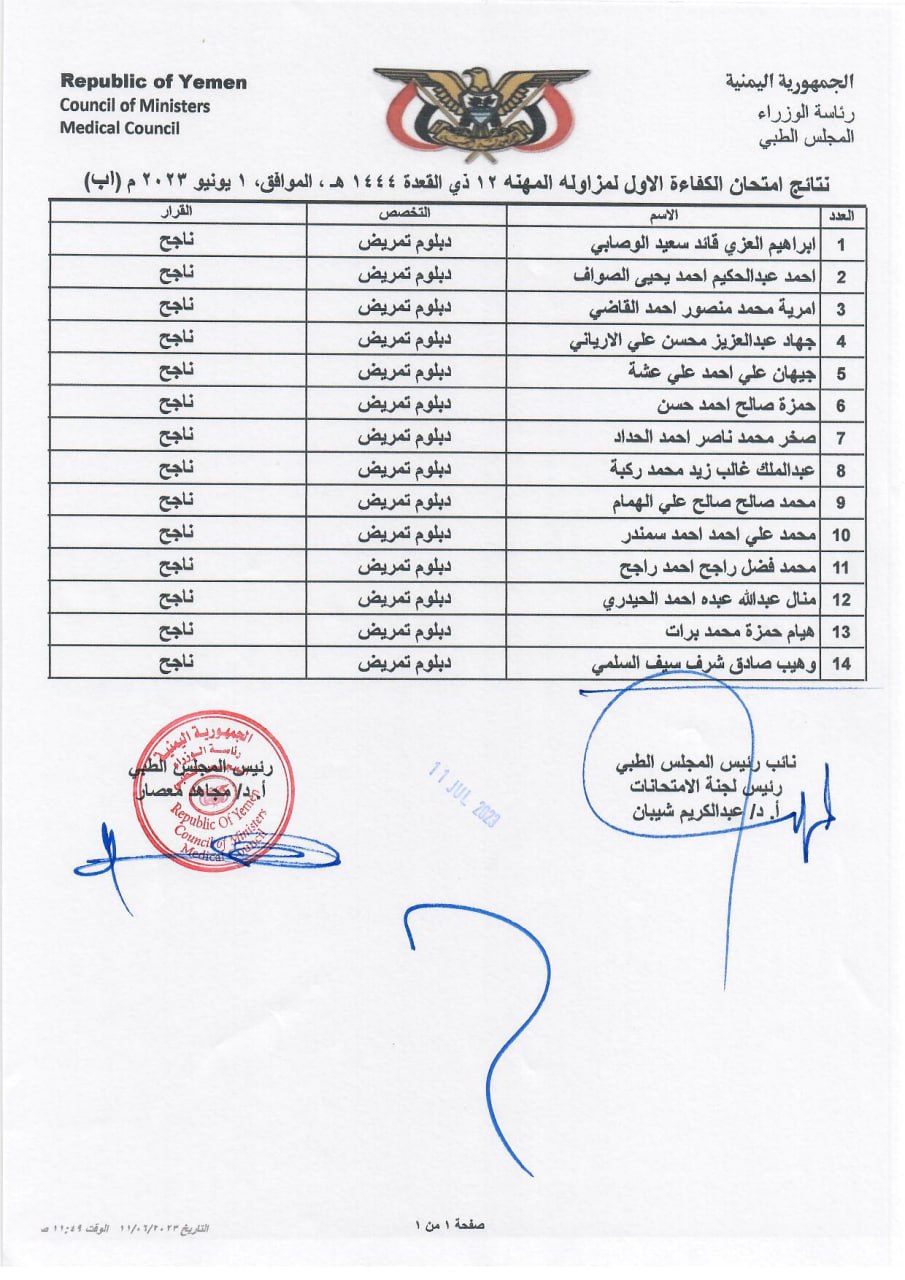 Republic of Yemen
Council of Ministers
Medical Council
الجمهورية اليمنية
رئاسة الوزراء
المجلس الطبي
نتائج امتحان الكفاءة الاول لمزاوله المهنه ١٢ ذي القعدة ١٤٤٤ هـ ، الموافق، ١ يونيو ٢٠٢٣ م (اب)
العدد الاسم التخصص القرار
1 ابراهيم العزي قائد سعيد الوصابي دبلوم تمريض ناجح
2 احمد عبدالحكيم احمد يحيى الصواف دبلوم تمريض ناجح
3 امرية محمد منصور احمد القاضي دبلوم تمريض ناجح
4 جهاد عبدالعزيز محسن علي الارياني دبلوم تمريض ناجح
5 جيهان علي احمد علي عشة دبلوم تمريض ناجح
6 حمزة صالح احمد حسن دبلوم تمريض ناجح
7 صخر محمد ناصر احمد الحداد دبلوم تمريض ناجح
8 عبدالملك غالب زيد محمد ركبة دبلوم تمريض ناجح
9 محمد صالح صالح علي الهمام دبلوم تمريض ناجح
10 محمد علي احمد احمد سمندر دبلوم تمريض ناجح
11 محمد فضل راجح احمد راجح دبلوم تمريض ناجح
12 منال عبدالله عبده احمد الحيدري دبلوم تمريض ناجح
13 هيام حمزة محمد برات دبلوم تمريض ناجح
14 وهيب صادق شرف سيف السلمي دبلوم تمريض ناجح
نائب رئيس المجلس الطبي
رئيس لجنة الامتحانات
أ. د/ عبدالكريم شيبان
11 JUL 2023
رئيس المجلس الطبي
أ. د/ مجاهد معصار
الجمهورية اليمنية
رئاسة الوزراء
Republic Of Yemen
Council of Ministers
Medical Council
صفحة ١ من ١
التاريخ ١١/٠٦/٢٠٢٣ الوقت ١١:٤٩ صـ